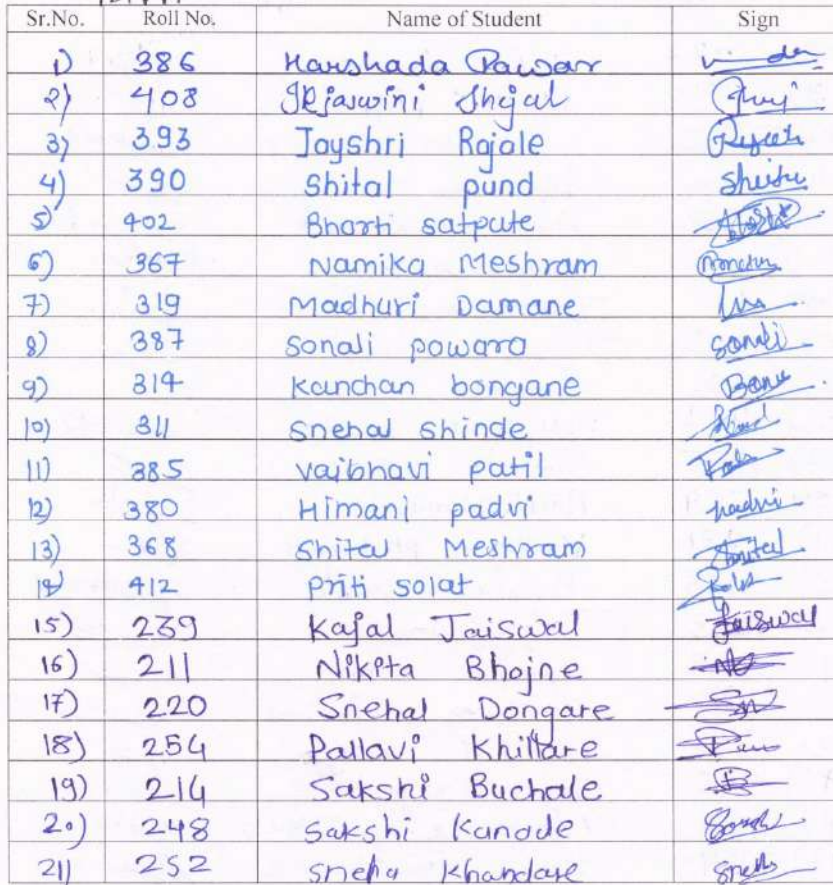 Sr.No. Roll No. Name of Student Sign
1) 386 Harshada Pawar
2) 408 Tejaswini Shejal
3) 393 Jayshri Rajale
4) 390 Shital pund
5) 402 Bharti satpute
6) 367 Namika Meshram
7) 319 Madhuri Damane
8) 387 Sonali powara Sonali
9) 314 Kanchan bongane
10) 311 Snehal shinde
11) 385 vaibhavi patil
12) 380 Himani padvi padvi
13) 368 Shital Meshram Shital
14) 412 Priti Solat
15) 239 Kajal Jaiswal Jaiswal
16) 211 Nikita Bhojne
17) 220 Snehal Dongare
18) 254 Pallavi Khillare
19) 214 Sakshi Buchale
20) 248 Sakshi Kanade
21) 252 Sneha Khandare